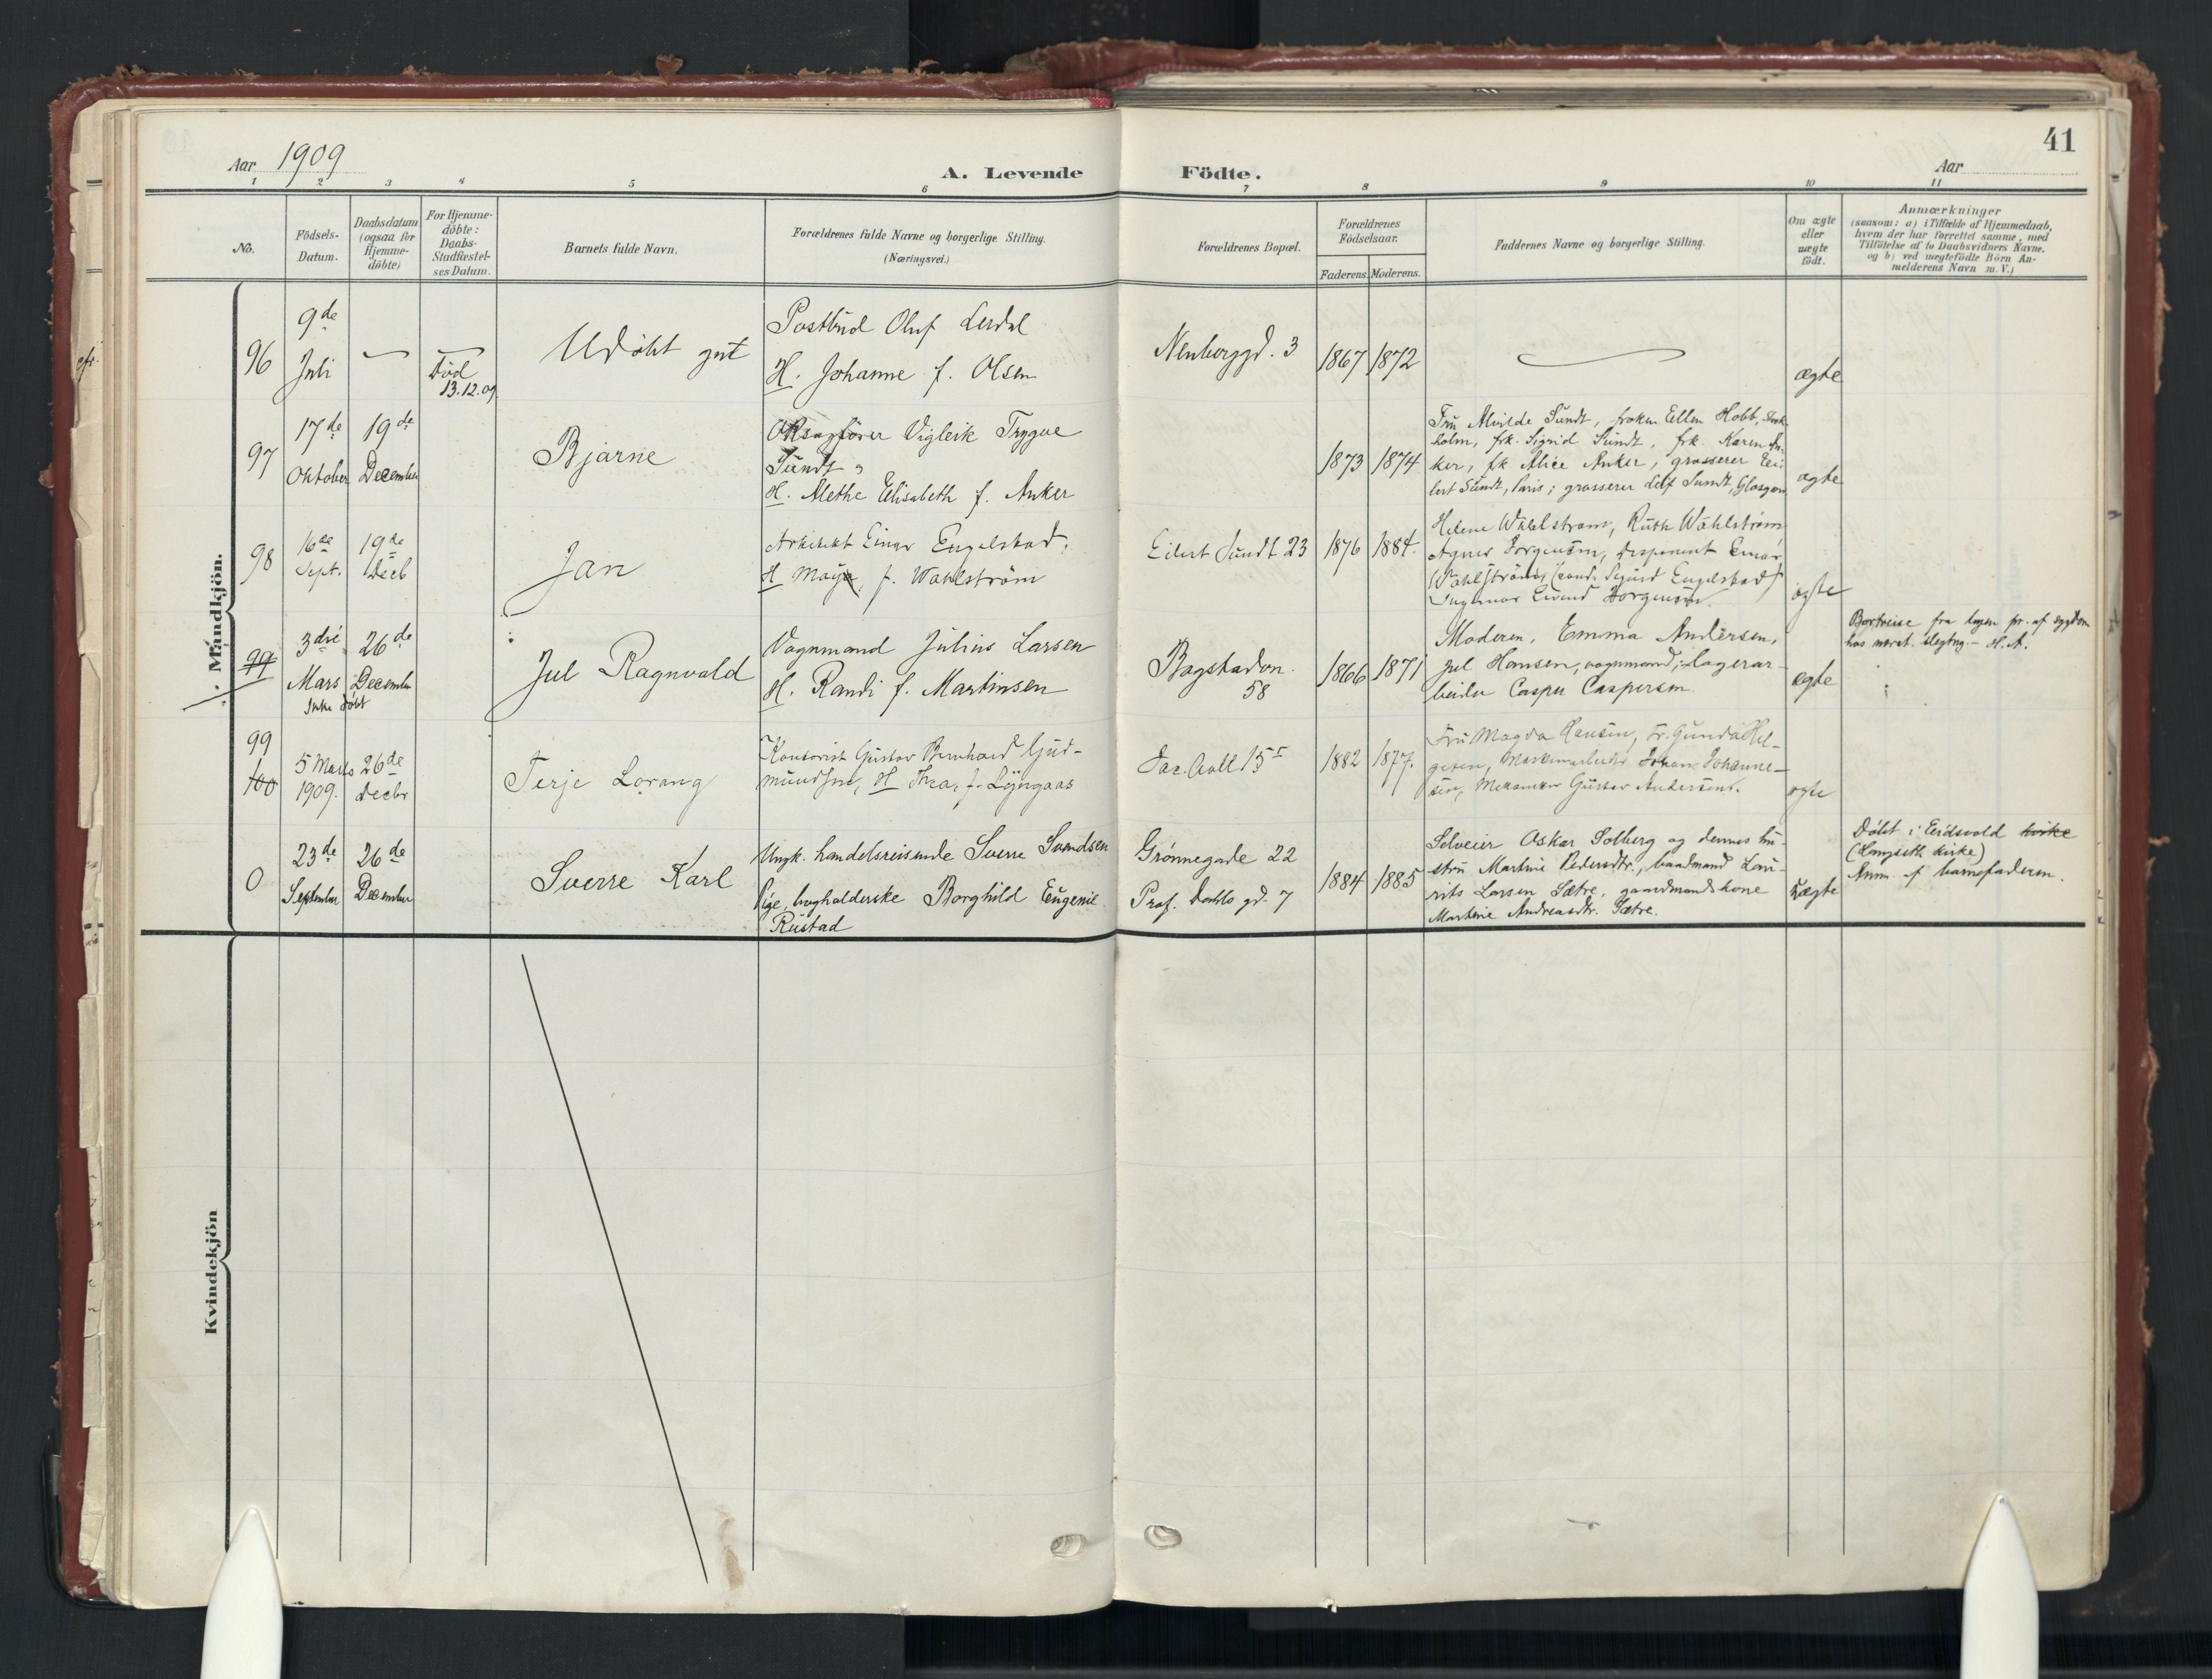 41
Aar 1909
A. Levende Födte.
Aar
1 2 3 4 5 6 7 8 9 10 11
No.
Födsels-
Datum.
Daabsdatum
(ogsaa for
Hjemme-
döbte)
For Hjemme-
döbte:
Daabs-
Stadfæstel-
ses Datum.
Barnets fulde Navn.
Forældrenes fulde Navne og borgerlige Stilling.
(Næringsvei.)
Forældrenes Bopæl.
Forældrenes
Födselsaar.
Faderens. Moderens.
Faddernes Navne og borgerlige Stilling.
Om ægte
eller
uægte
födt.
Anmærkninger
(saasom: a) i Tilfælde af Hjemmedaab,
hvem der har forrettet samme, med
Tilföielse af to Daabsvidners Navne.
og b) ved uægtefödte Börn An-
melderens Navn m. V.)
Mandkjön.
96
9de
Juli
Död
13.12.09
Udøbt gut
Postbud Oluf Lerdal
H. Johanne f. Olsen
Nenberggd. 3
1867 1872
ægte
97
17de
Oktober
19de
December
Bjarne
Vigleik Trygve
Sundt
H. Alethe Elisabeth f. Anker
1873 1874
Fru Alvilde Sundt, frøken Ellen Hobb, Stok-
holm, frk. Sigrid Sundt, frk. Karen An-
ker, fk. Alice Anker, grosserer Ei-
lert Sundt, Paris; grosserer Leif Sundt, Glasgow
ægte
98
16de
Sept.
19de
Decb
Jan
Arkitekt Einar Engelstad,
H Maja, f. Wahlström
Eilert Sundt 23
1876 1884.
Helene Wahlstrøm, Ruth Wahlstrøm
Agnes Jorgensen, disponent Einar
Wahlstrøm, cand. Sigurd Engelstad
Ingeniør Eivind Jorgensen
ægte
99
3die
Mars
Ikke døbt
26de
December
Jul Ragnvald
Vognmand Julius Larsen
H. Randi f. Martinsen
Bogstadvn.
58
1866 1871
Moderen, Emma Andersen,
Jul Hansen, vognmand; lagerar-
beider Casper Caspersen.
ægte
Bortreise fra byen pr. af sygdom
hos nærst. slegtng. - H. A.
99
100
5 Marts
1909.
26de
Decbr
Terje Lorang
Kontorist Gustav Bernhard Gud-
mundsen, H Thea, f. Lyngaas
Jac. Aall 15
1882 1877.
Fru Magda Hansen, Fr. Gunda Hel-
gesen, Maskinarbeider Johan Johanne-
sen, Mekaniker Gustav Andersen.
ægte
0
23de
September
26de
December
Sverre Karl
Ungk. handelsreisende Sverre Svendsen
Pige, bogholderske Borghild Eugenie
Rustad
Grønnegade 22
Prof. Dahls gd. 7
1884 1885
Selveier Oskar Solberg og dennes hu-
stru Martine Pedersdtr., baadmand Lau-
rits Larsen Sætre, gaardmandskone
Martine Andreasdtr. Sætre.
uægte
Døbt i Eidsvold kirke
(Langseth kirke)
Anm. af barnefaderen.
Kvindekjön